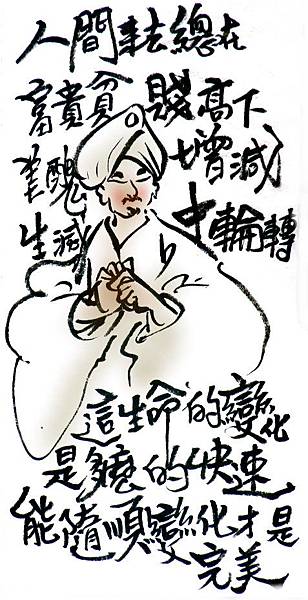 人間來去總在
富貴貧賤高下
美醜 增減
生滅 中輪轉
這生命的變化
是多麼的快速
能隨順變化才是
完美